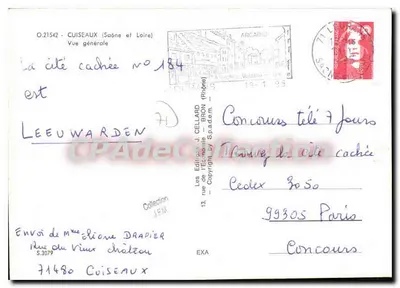 O.21542 - CUISEAUX (Saône et Loire)
Vue générale
la cité cachée n° 184
est
LEEUWARDEN
71
Collection
J.F.V.
Envoi de Mme Eliane DRAPIER
Rue du Vieux château
S.3079
71480 CUISEAUX
EXA
Les Editions J. CELLARD
13, rue de l'Echaplade - BRON (Rhône)
Copyright by S.p.a.d.e.m.
ARCADES
Concours télé 7 Jours
la cité cachée
Cedex 3050
99305 Paris
Concours
CPArteDeCollection